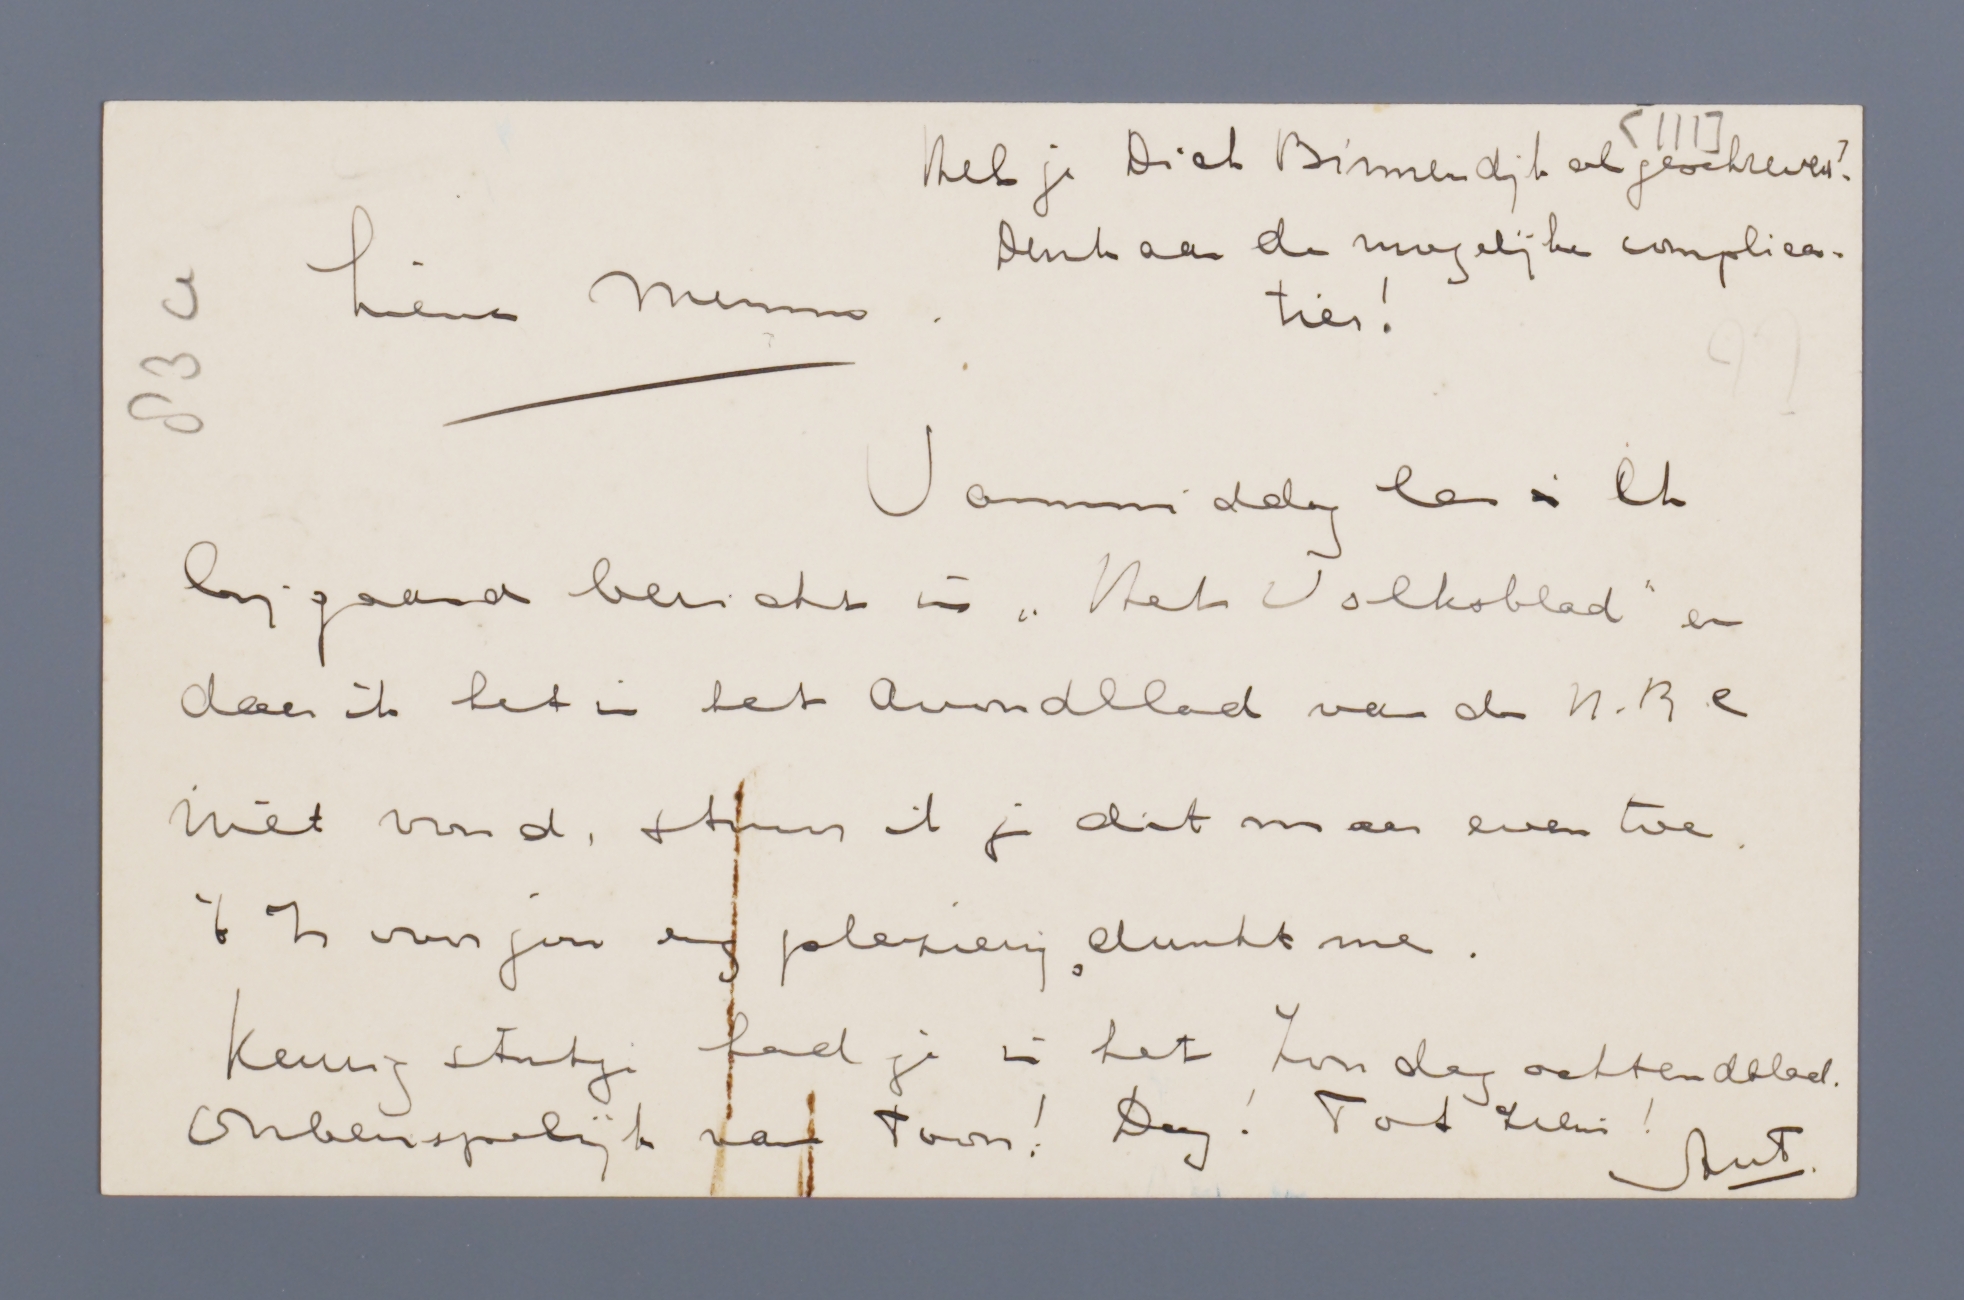 [III]
Heb je Dick Binnendijk al geschreven?
Denk aan de mogelijke complica-
ties!
83 a
Lieve Menno.
Vanmiddag las ik
bijgaand bericht in „Het Volksblad" en
daar ik het in het Avondblad van de N.R.C
niet vond, stuur ik je dit maar even toe.
't Is voor jou erg plezierig, dunkt me.
Keurig stukje had je in het Zondagochtendblad.
Onberispelijk van toon! Dag! Tot ziens!
Ant.